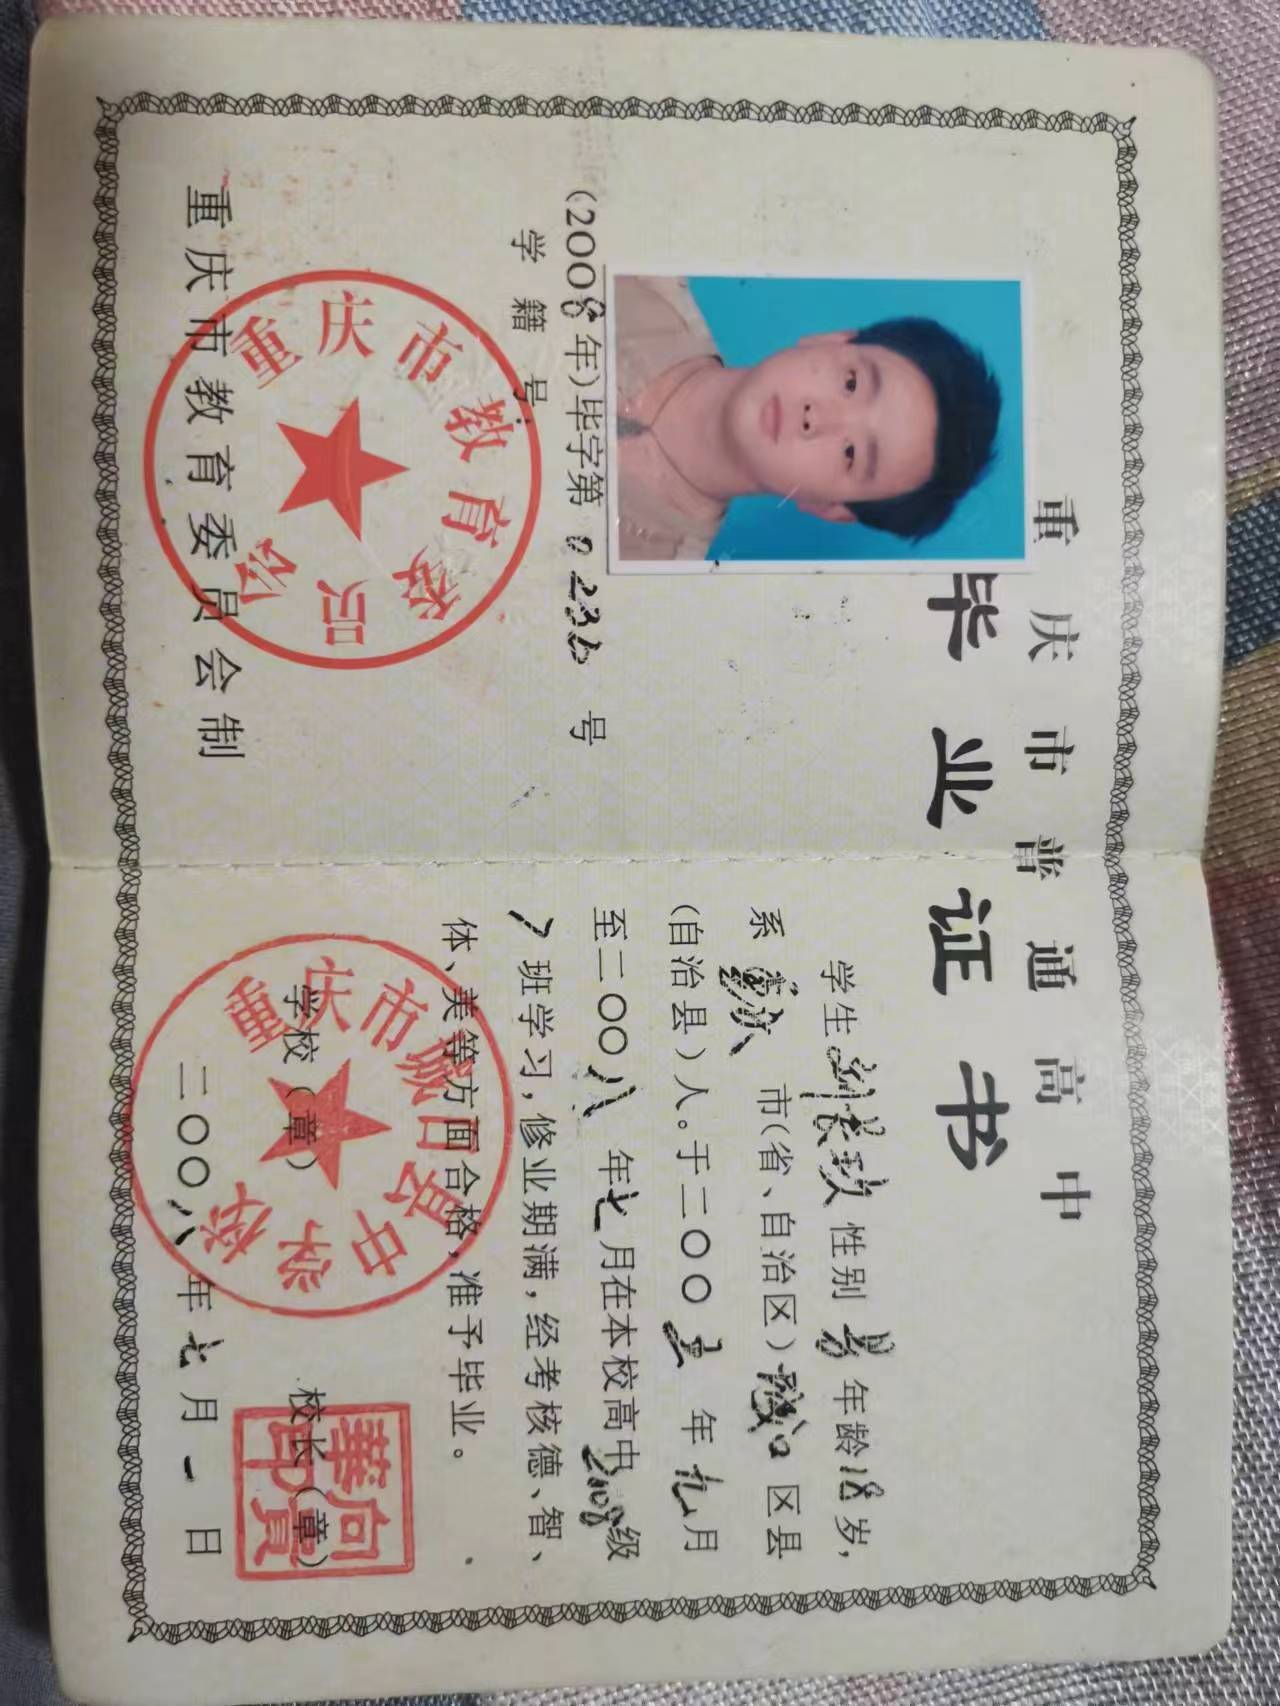 重庆市普通高中
毕业证书
(2008年)毕字第0236号
学籍号:
重庆市教育委员会制
重庆市教育委员会
学生 性别男年龄18岁,
系重庆市(省、自治区)城口区县
(自治县)人。于二〇〇五年九月
至二〇〇八年七月在本校高中2008级
班学习,修业期满,经考核德、智、
体、美等方面合格,准予毕业。
学校(章) 校长(章)
重庆市城口县中学校
二〇〇八年七月一日